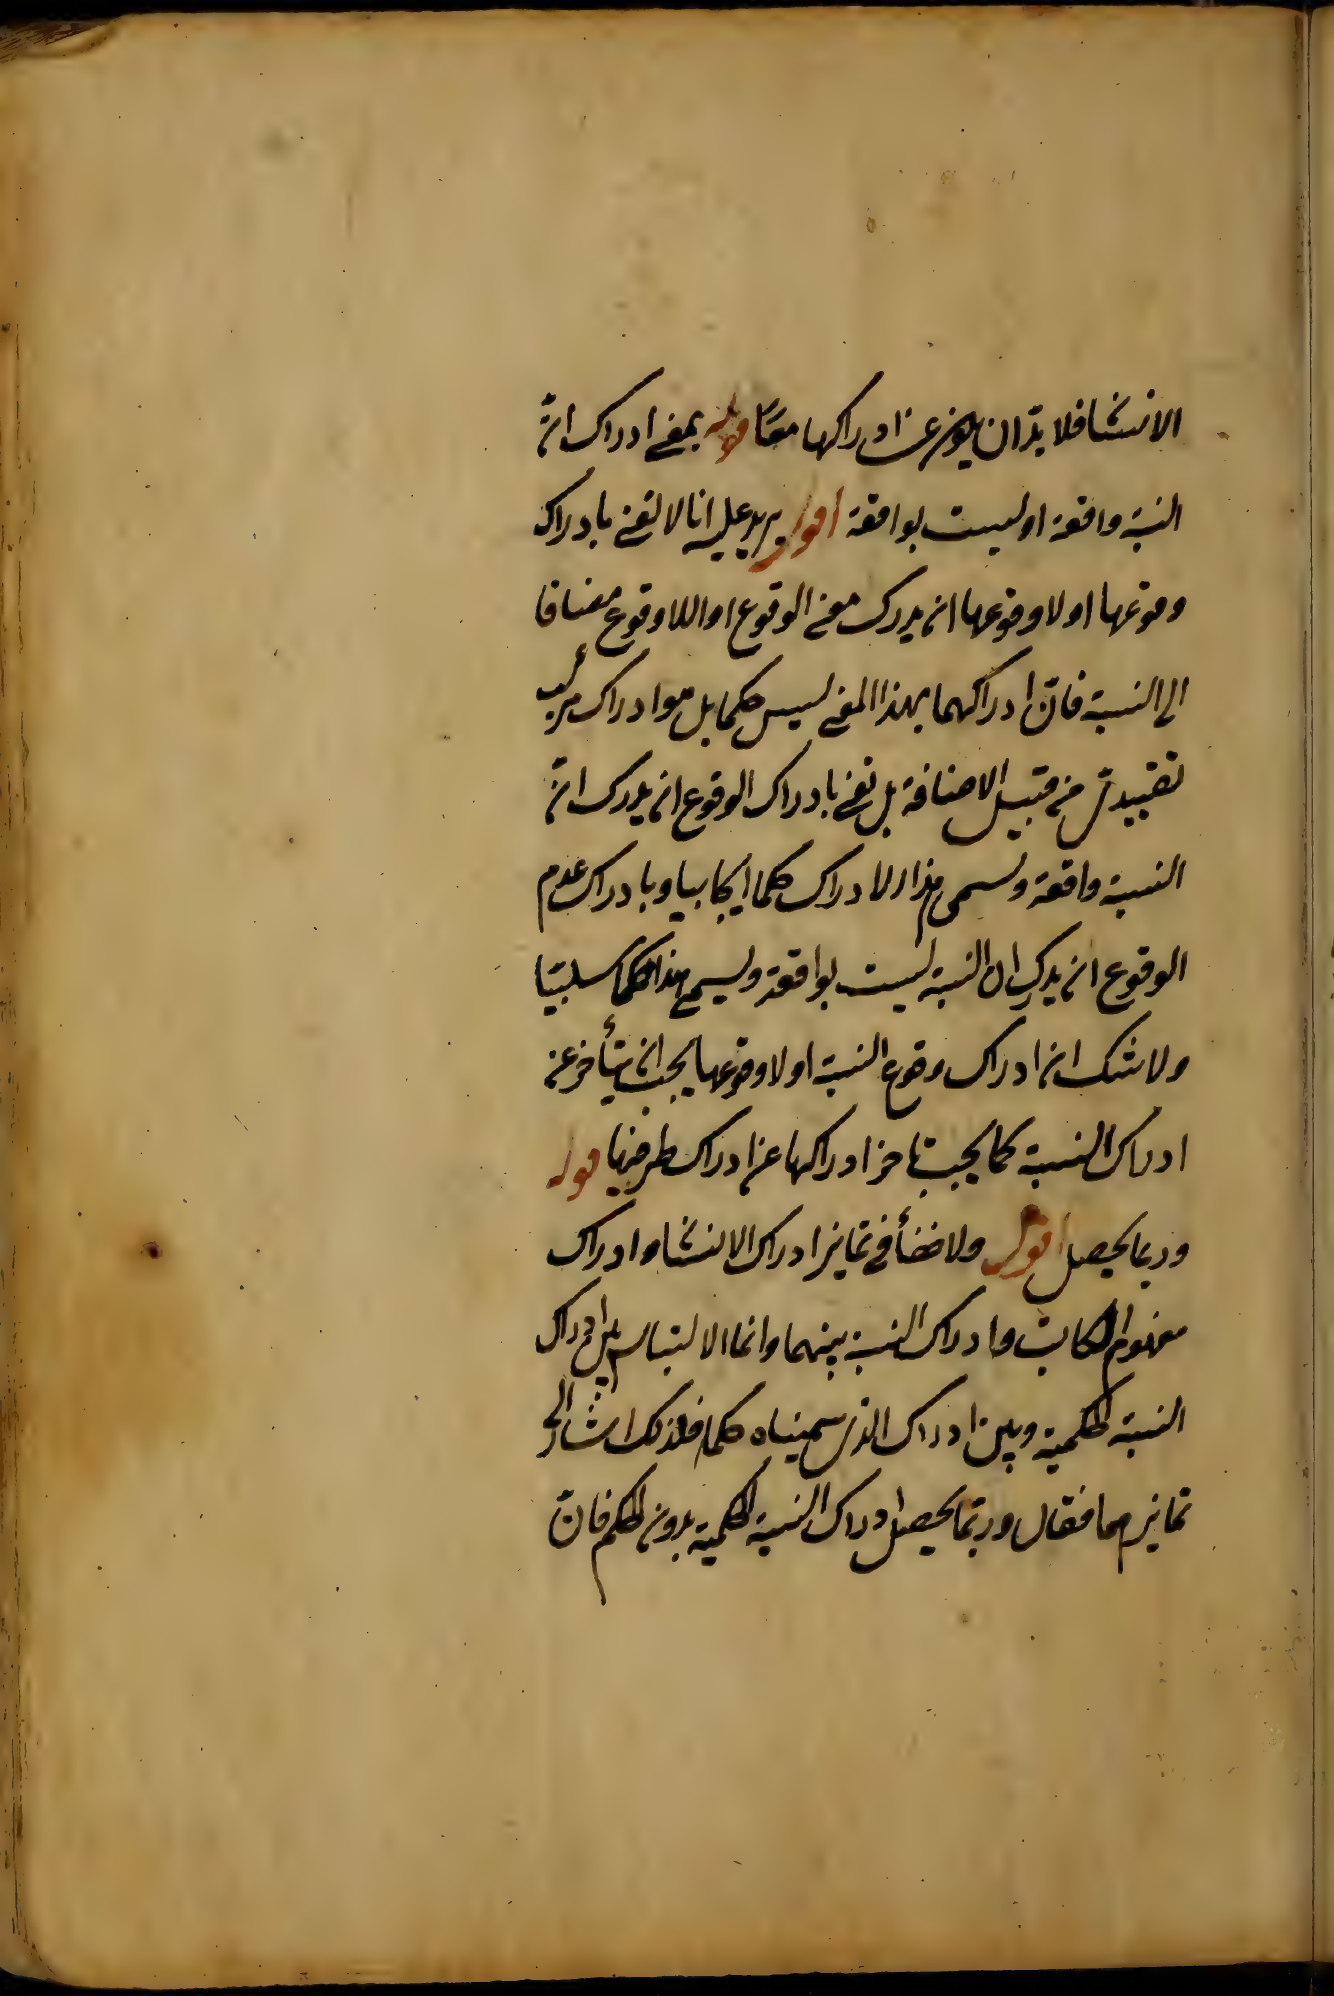 الانسان فلا بد ان يكون عند ادراكها معا قوله بمعنى ادراك ان
النسبة واقعة او ليست بواقعة اقول يريد على انا لا نعنى بادراك
وقوعها او لا وقوعها ان يدرك معنى الوقوع او اللاوقوع مضافا
الى النسبة فان ادراكهما بهذا المعنى ليس حكما بل هو ادراك مركب
تقييدى من قبيل الاضافة بل نعنى بادراك الوقوع ان يدرك ان
النسبة واقعة ويسمى هذا الادراك حكما ايجابيا وبادراك عدم
الوقوع ان يدرك ان النسبة ليست بواقعة ويسمى هذا حكما سلبيا
ولا شك ان ادراك وقوع النسبة او لا وقوعها يجب ان يتأخر عن
ادراك النسبة كما يجب تاخر ادراكها عن ادراك طرفيها قوله
وربما يحصل اقول ولا خفأ فى تمايز ادراك الانسان وادراك
مفهوم الكاتب وادراك النسبة بينهما وانما الالتباس بين ادراك
النسبة الحكمية وبين ادراك الذى سميناه حكما فلذلك اشار الى
تمايزهما فقال وربما يحصل ادراك النسبة الحكمية بدون الحكم فان